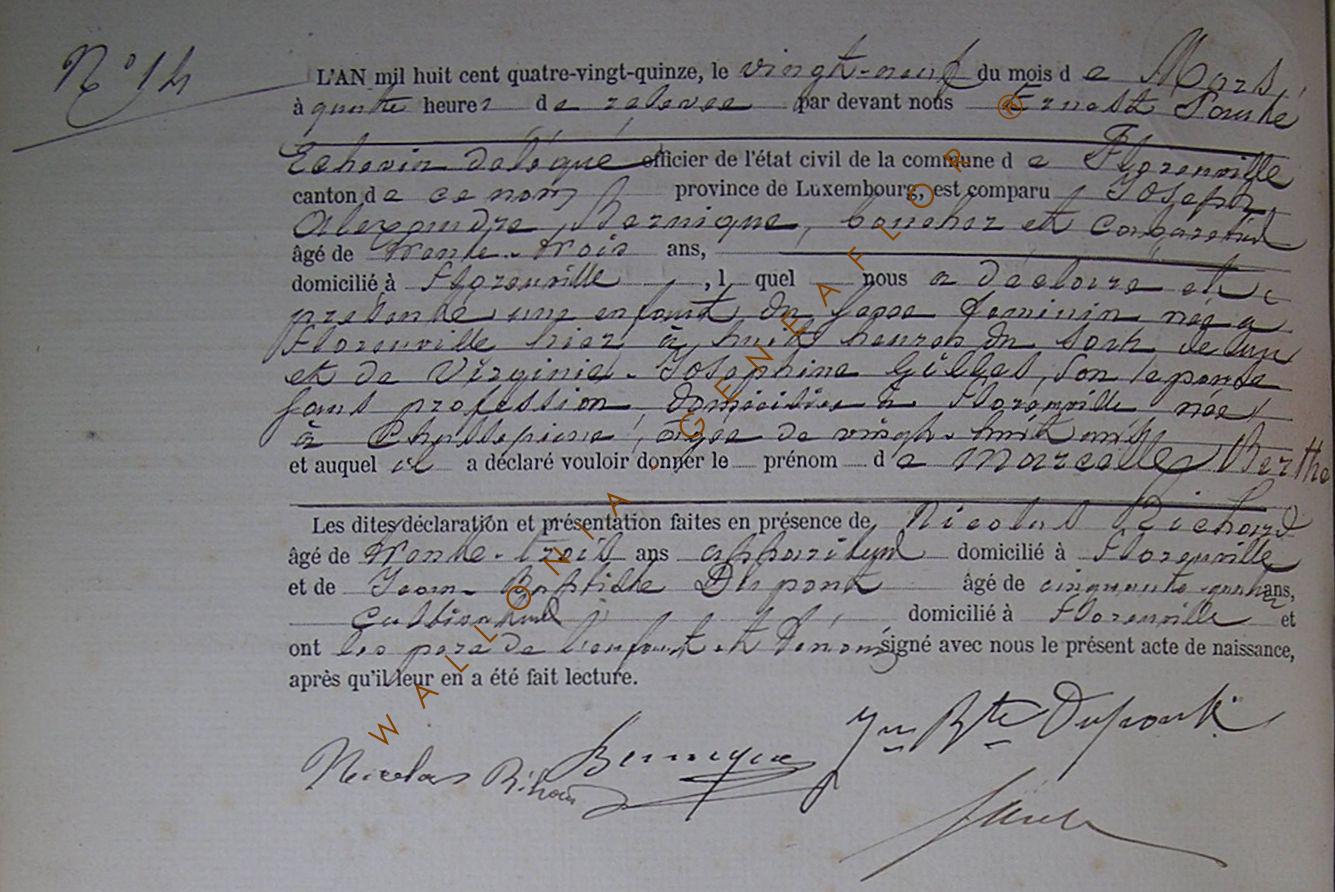 N° 14
L'AN mil huit cent quatre-vingt-quinze, le vingt-neuf du mois de Mars,
à quatre heures de relevée par devant nous Ernest
Echevin délégué officier de l'état civil de la commune de Florenville
canton de ce nom province de Luxembourg, est comparu Joseph
Alexandre Bernique, boucher et
âgé de trente-trois ans,
domicilié à Florenville, lequel nous a déclaré et
présenté une enfant du sexe féminin née à
Florenville hier à huit heures du soir de lui
et de Virginie-Joséphine Gilles, son épouse
sans profession, domiciliée à Florenville née
à Chassepierre, âgée de vingt-huit ans
et auquel il a déclaré vouloir donner le prénom de Marcelle Berthe
Les dites déclaration et présentation faites en présence de Nicolas Richard
âgé de trente-trois ans appariteur domicilié à Florenville
et de Jean-Baptiste Dupont âgé de cinquante quatre ans,
cultivateur domicilié à Florenville et
ont les père de l'enfant et témoins signé avec nous le présent acte de naissance,
après qu'il leur en a été fait lecture.
Nicolas Bernique Jn Bte Dupont
WALLONIA - GENEAFLOR ®